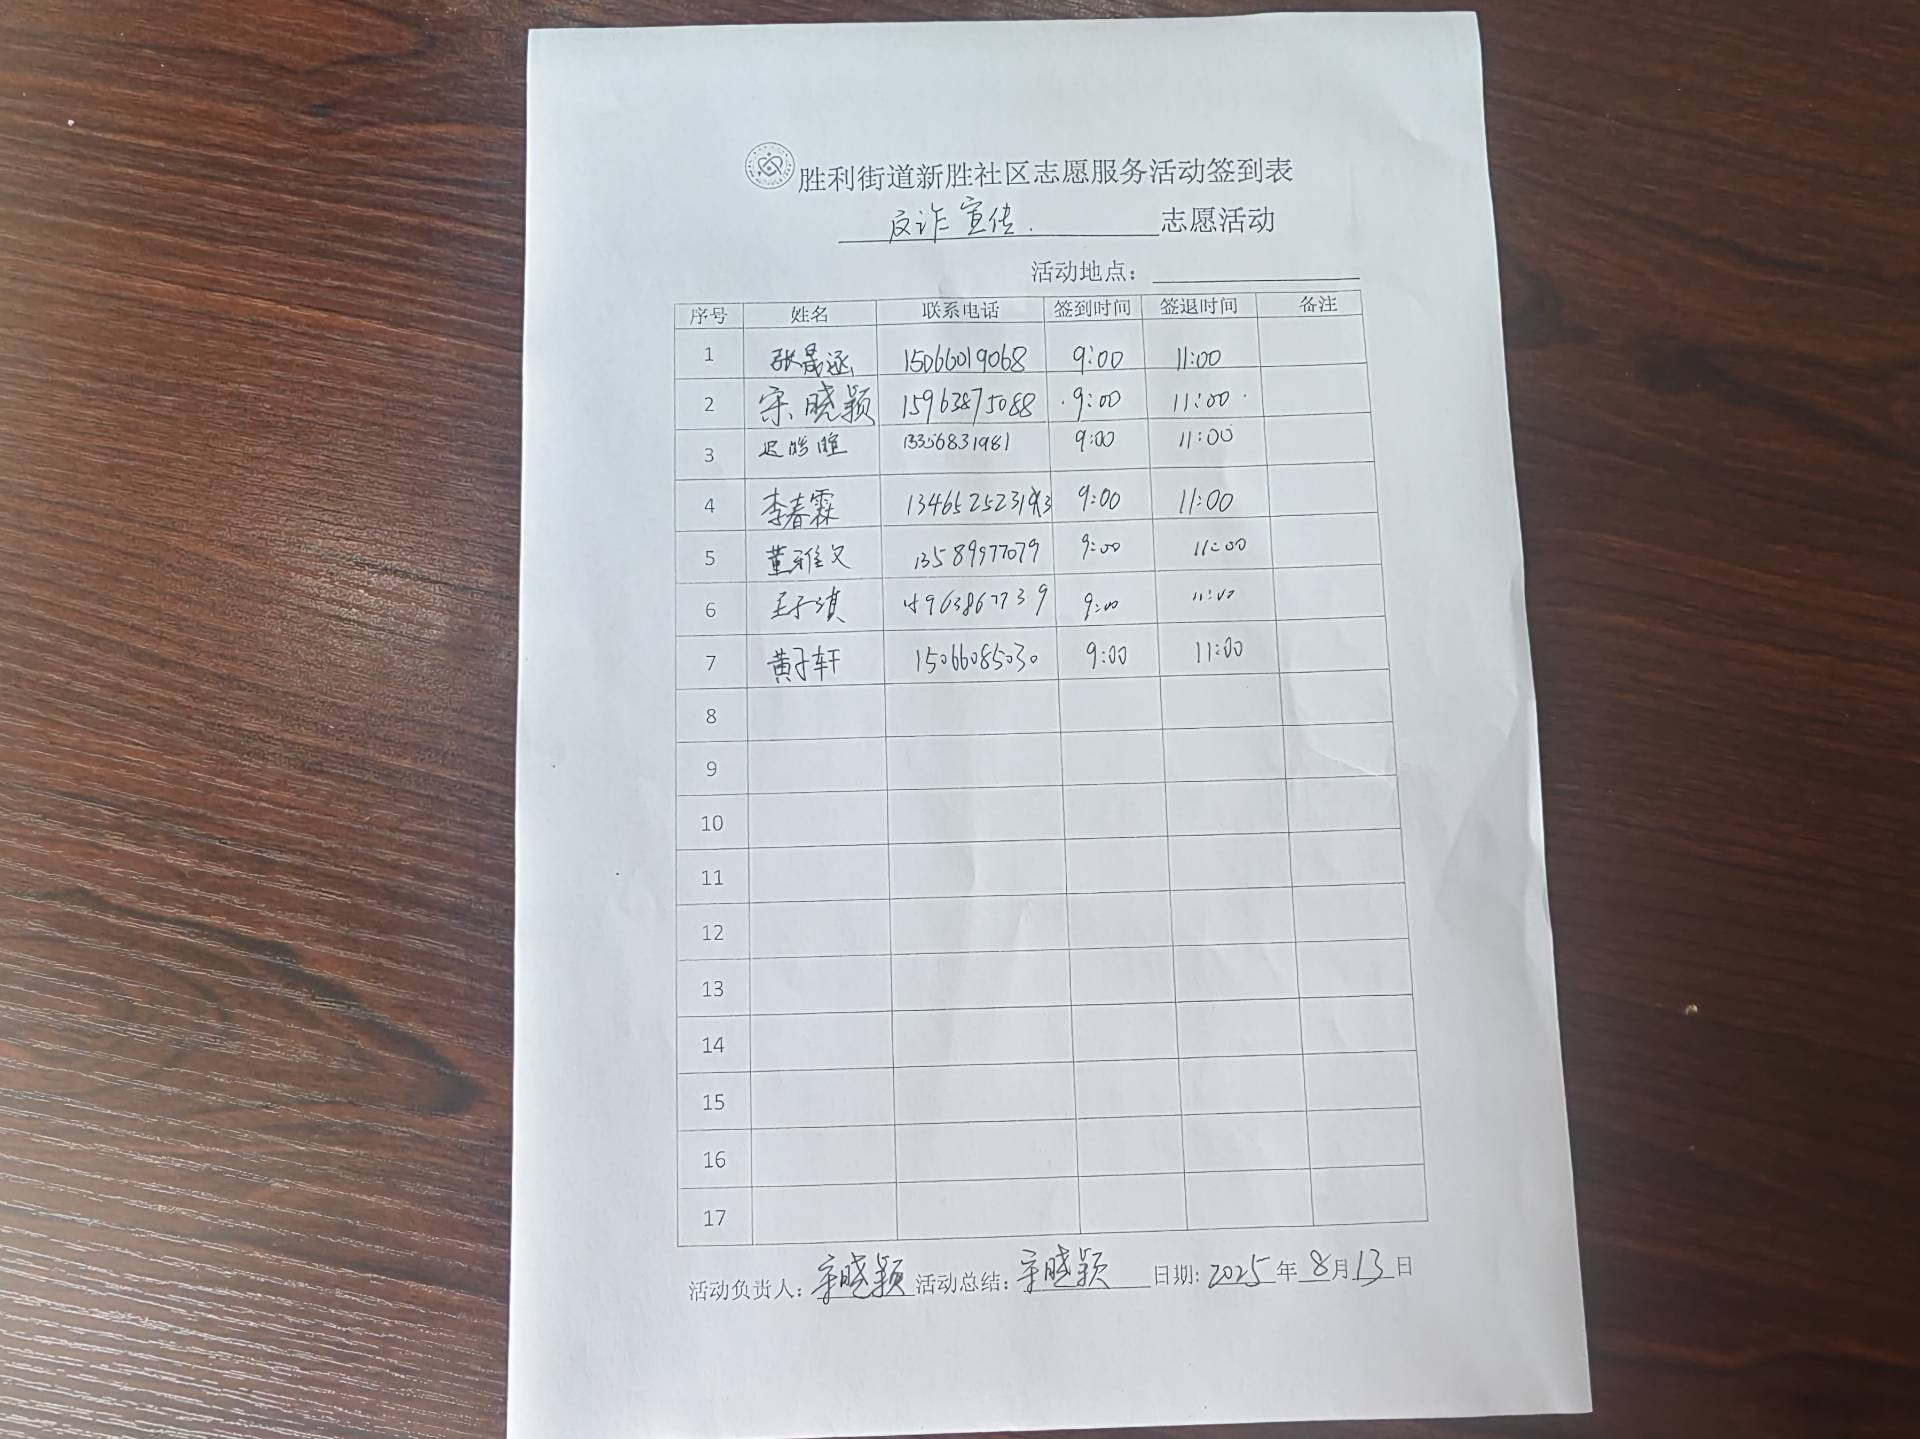 胜利街道新胜社区志愿服务活动签到表
反诈宣传. 志愿活动
活动地点：
序号 姓名 联系电话 签到时间 签退时间 备注
1 张晟涵 15066019068 9:00 11:00
2 宋晓颖 15963875088 9:00 11:00
3 迟皓暄 13356831981 9:00 11:00
4 李春霖 9:00 11:00
5 董雅文 13589977079 9:00 11:00
6 王子淇 9:00 11:00
7 黄子轩 15066085030 9:00 11:00
8
9
10
11
12
13
14
15
16
17
活动负责人：宋晓颖 活动总结：宋晓颖 日期：2025年8月13日